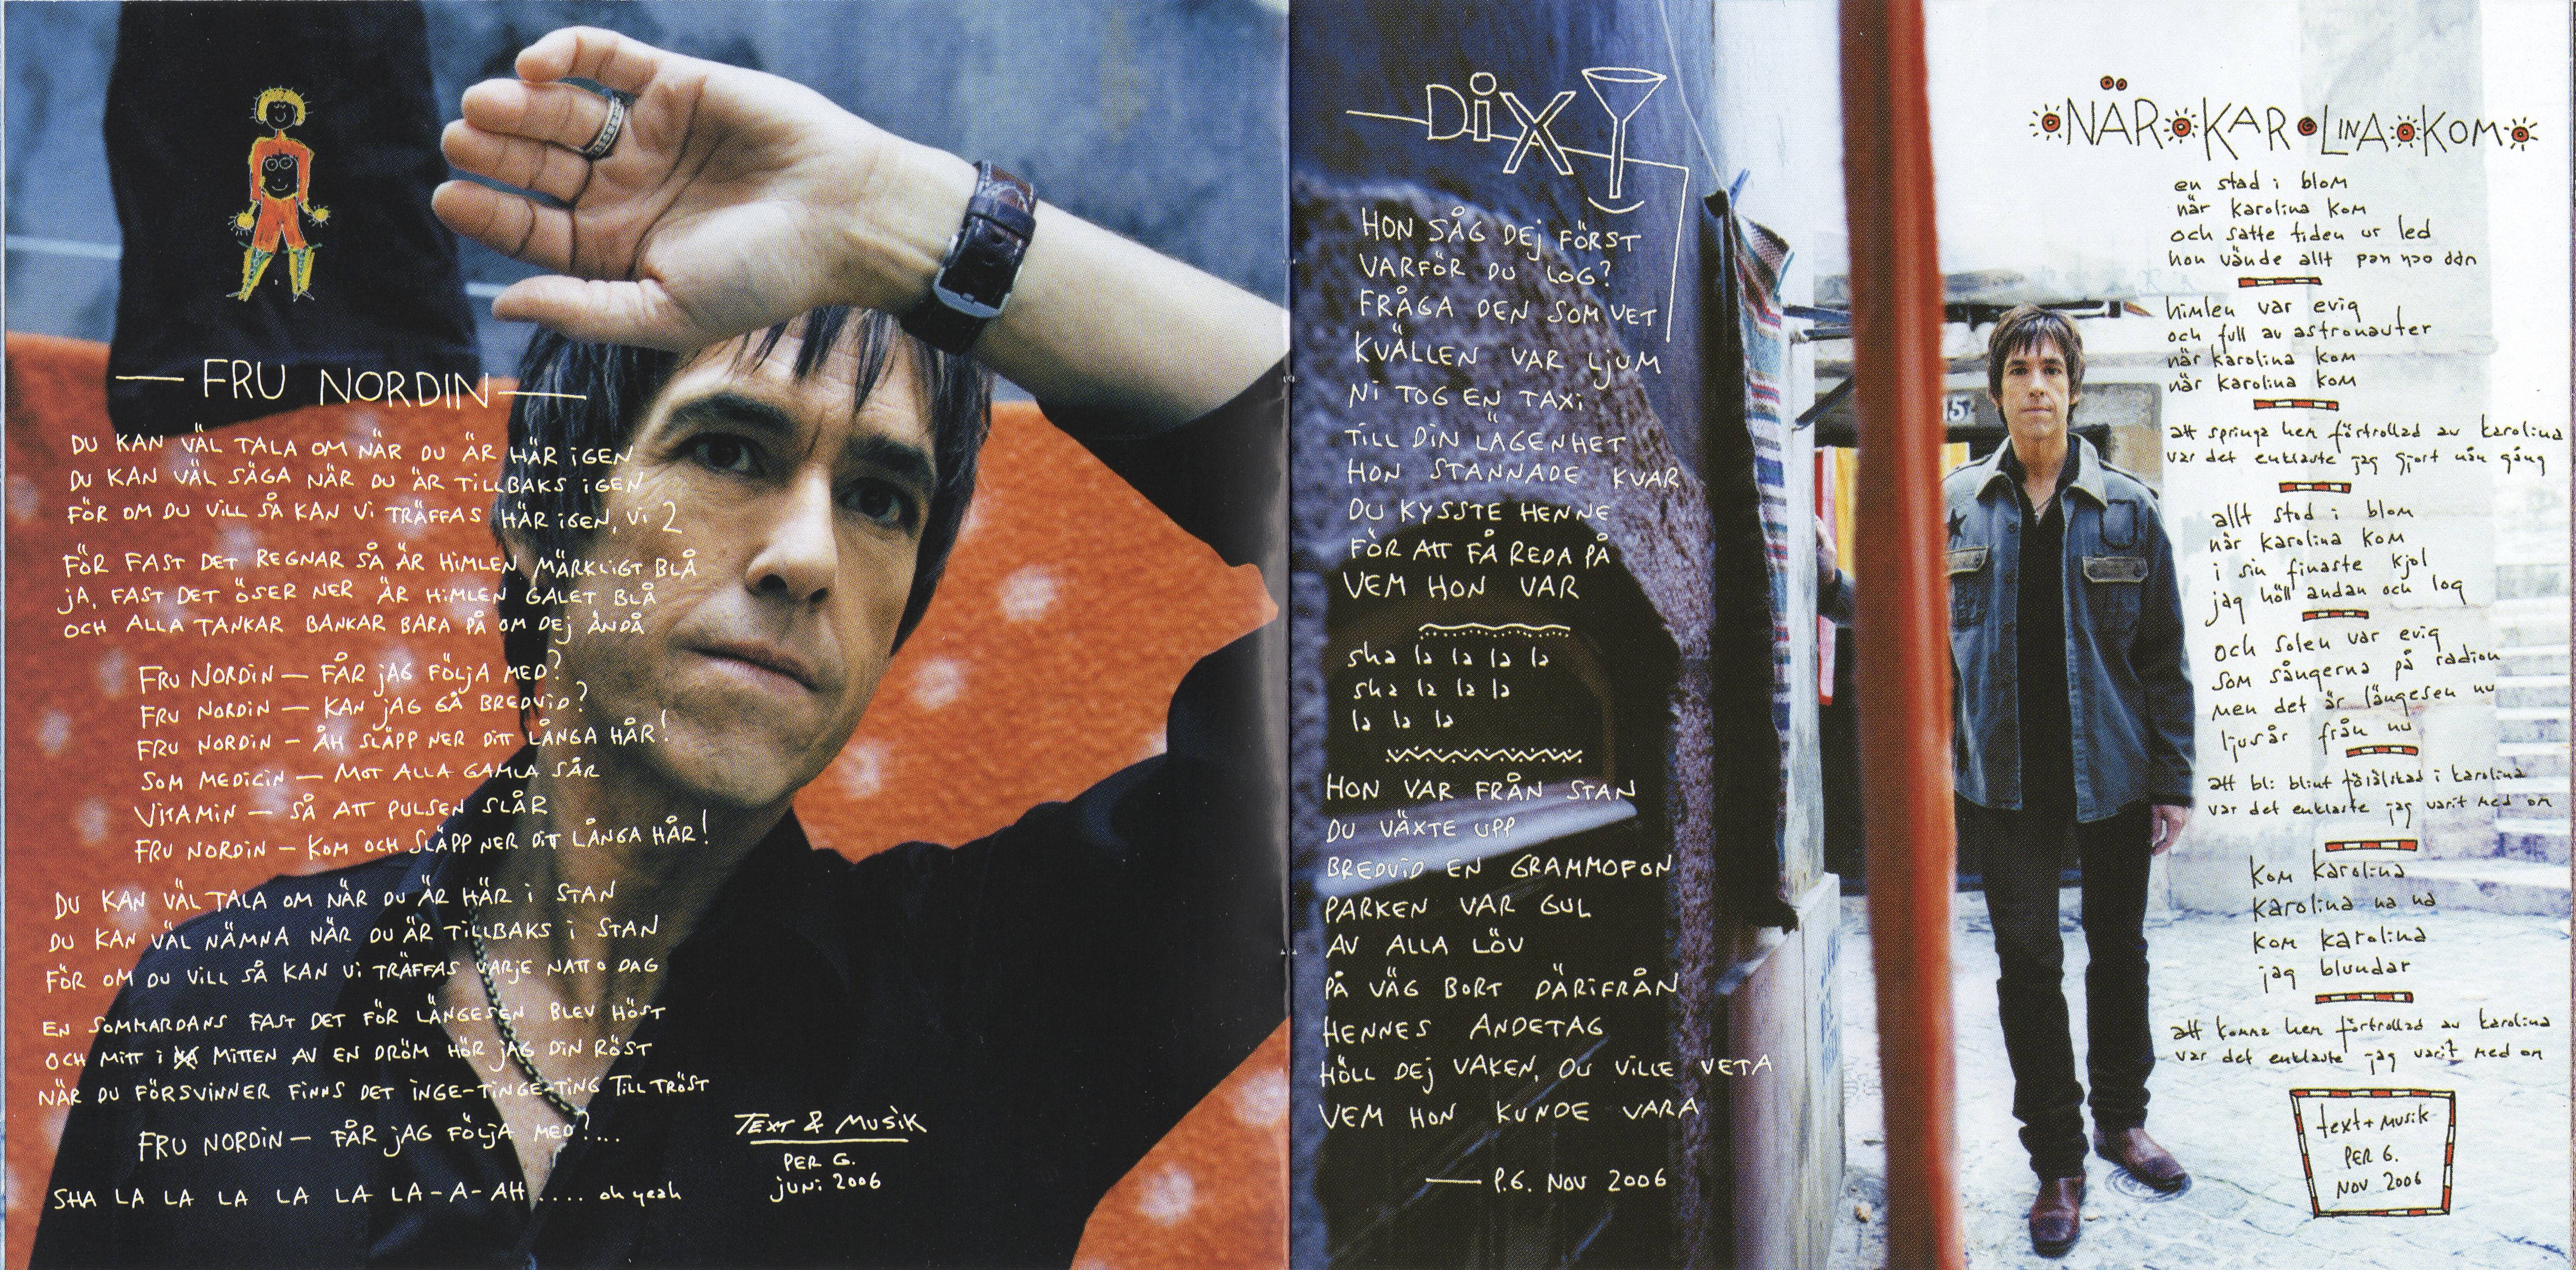 FRU NORDIN
DU KAN VÄL TALA OM NÄR DU ÄR HÄR IGEN
DU KAN VÄL SÄGA NÄR DU ÄR TILLBAKS IGEN
FÖR OM DU VILL SÅ KAN VI TRÄFFAS HÄR IGEN, VI 2
FÖR FAST DET REGNAR SÅ ÄR HIMLEN MÄRKLIGT BLÅ
JA, FAST DET ÖSER NER ÄR HIMLEN GALET BLÅ
OCH ALLA TANKAR BANKAR BARA PÅ OM DEJ ÄNDÅ
FRU NORDIN – FÅR JAG FÖLJA MED?
FRU NORDIN – KAN JAG GÅ BREDVID?
FRU NORDIN – ÅH SLÄPP NER DITT LÅNGA HÅR!
SOM MEDICIN – MOT ALLA GAMLA SÅR
VITAMIN – SÅ ATT PULSEN SLÅR
FRU NORDIN – KOM OCH SLÄPP NER DITT LÅNGA HÅR!
DU KAN VÄL TALA OM NÄR DU ÄR HÄR I STAN
DU KAN VÄL NÄMNA NÄR DU ÄR TILLBAKS I STAN
FÖR OM DU VILL SÅ KAN VI TRÄFFAS VARJE NATT O DAG
EN SOMMARDANS FAST DET FÖR LÄNGESEN BLEV HÖST
OCH MITT I MITTEN AV EN DRÖM HÖR JAG DIN RÖST
NÄR DU FÖRSVINNER FINNS DET INGE-TINGE-TING TILL TRÖST
FRU NORDIN – FÅR JAG FÖLJA MED?...
SHA LA LA LA LA LA LA-A-AH .... oh yeah
TEXT & MUSIK
PER G.
JUNI 2006
DIXY
HON SÅG DEJ FÖRST
VARFÖR DU LOG?
FRÅGA DEN SOM VET
KVÄLLEN VAR LJUM
NI TOG EN TAXI
TILL DIN LÄGENHET
HON STANNADE KVAR
DU KYSSTE HENNE
FÖR ATT FÅ REDA PÅ
VEM HON VAR
sha la la la la
sha la la la
la la la
HON VAR FRÅN STAN
DU VÄXTE UPP
BREDVID EN GRAMMOFON
PARKEN VAR GUL
AV ALLA LÖV
PÅ VÄG BORT DÄRIFRÅN
HENNES ANDETAG
HÖLL DEJ VAKEN, DU VILLE VETA
VEM HON KUNDE VARA
– P.G. NOV 2006
NÄR KAROLINA KOM
en stad i blom
när karolina kom
och satte tiden ur led
hon vände allt
himlen var evig
och full av astronauter
när karolina kom
när karolina kom
att springa hem förtrollad av karolina
var det enklaste jag gjort nån gång
allt stod i blom
när karolina kom
i sin finaste kjol
jag höll andan och log
och solen var evig
som sångerna på radion
men det är längesen nu
ljusår från nu
att bli blint förälskad i karolina
var det enklaste jag varit med om
kom karolina
karolina na na
kom karolina
jag blundar
att komma hem förtrollad av karolina
var det enklaste jag varit med om
text + musik
PER G.
NOV 2006